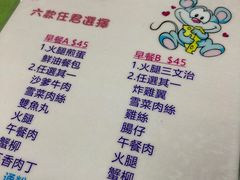 六款任君選擇
早餐A $45
1.火腿煎蛋
鮮油餐包
2.任選其一
沙爹牛肉
雪菜肉絲
雙魚丸
火腿
午餐肉
蟹柳
香肉丁
早餐B $45
1.火腿三文治
2.任選其一
炸雞翼
雪菜肉絲
雞絲
腸仔
午餐肉
火腿
蟹柳